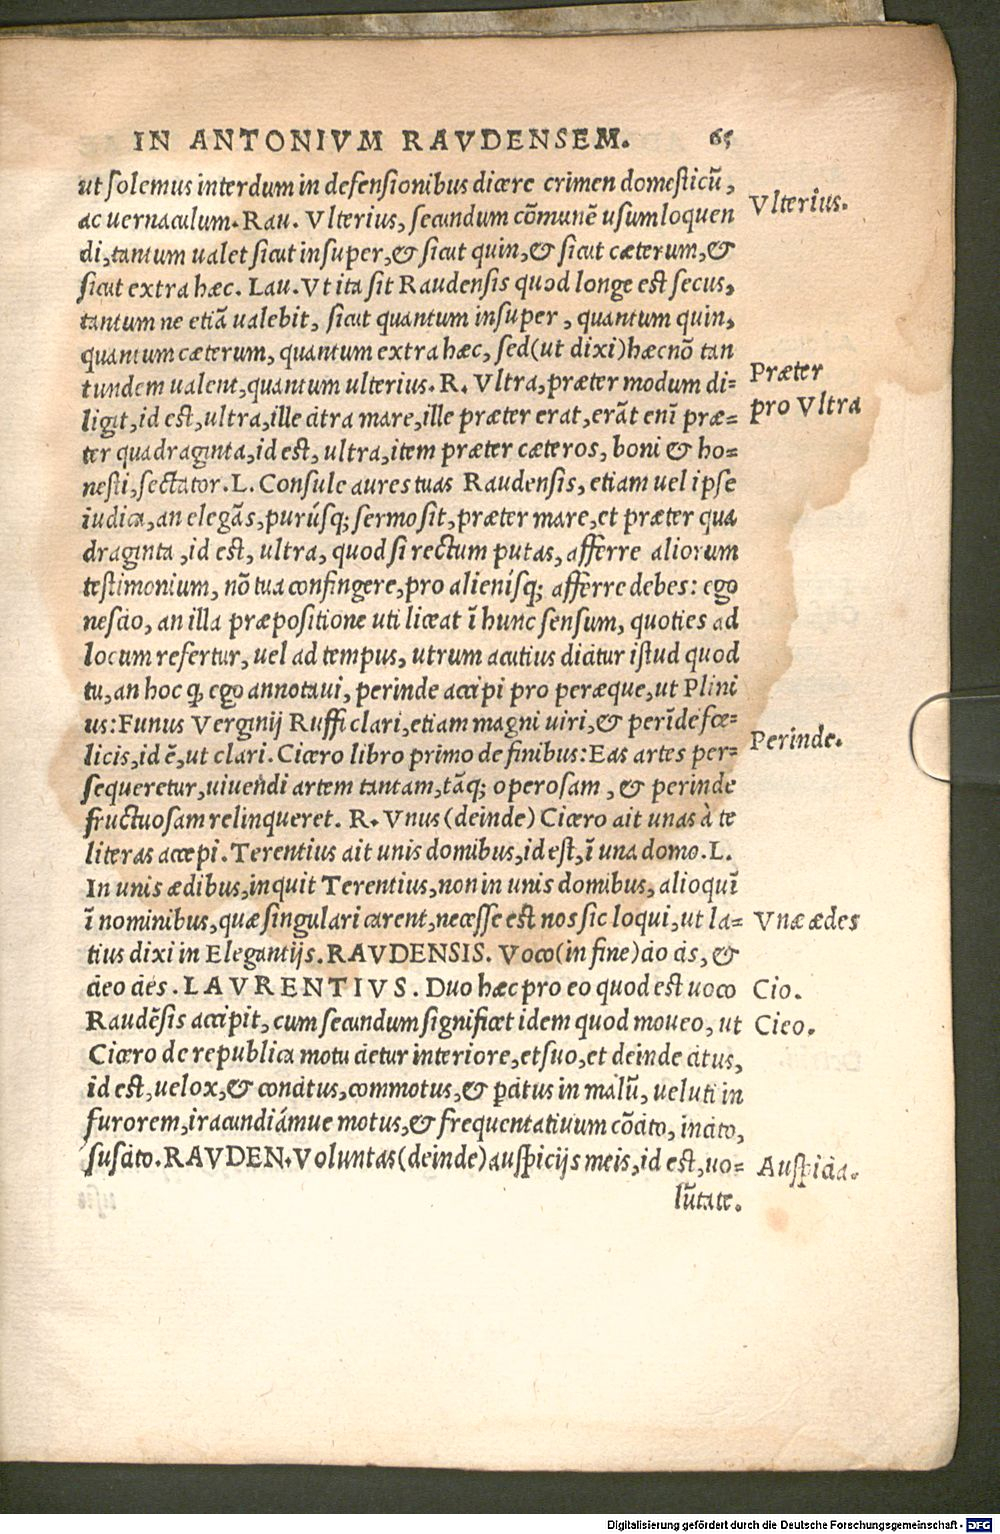 IN ANTONIVM RAVDENSEM. 65
ut solemus interdum in defensionibus dicere crimen domesticũ,
ac uernaculum. Rau. Vlterius, secundum cõmunẽ usum loquen
Vlterius.
di, tantum ualet sicut insuper, & sicut quin, & sicut cæterum, &
sicut extra hæc. Lau. Vt ita sit Raudensis quod longe est secus,
tantum ne etiã ualebit, sicut quantum insuper, quantum quin,
quantum cæterum, quantum extra hæc, sed (ut dixi) hæc nõ tan
tundem ualent, quantum ulterius. R. Vltra, præter modum di=
Præter
ligit, id est, ultra, ille citra mare, ille præter erat, erãt enĩ præ=
pro Vltra
ter quadraginta, id est, ultra, item præter cæteros, boni & ho=
nesti, sectator. L. Consule aures tuas Raudensis, etiam uel ipse
iudica, an elegãs, purúsq; sermo sit, præter mare, et præter qua
draginta, id est, ultra, quod si rectum putas, afferre aliorum
testimonium, nõ tua confingere, pro alienisq; afferre debes: ego
nescio, an illa præpositione uti liceat ĩ hunc sensum, quoties ad
locum refertur, uel ad tempus, utrum acutius dicatur istud quod
tu, an hoc ꝙ ego annotaui, perinde accipi pro peræque, ut Plini
us: Funus Verginij Ruffi clari, etiam magni uiri, & perĩde fœ=
licis, id ẽ, ut clari. Cicero libro primo de finibus: Eas artes per=
Perinde.
sequeretur, uiuendi artem tantam, tãq; operosam, & perinde
fructuosam relinqueret. R. Vnus (deinde) Cicero ait unas à te
literas accepi. Terentius ait unis domibus, id est, ĩ una domo. L.
In unis ædibus, inquit Terentius, non in unis domibus, alioquĩ
ĩ nominibus, quæ singulari carent, necesse est nos sic loqui, ut la=
Vnæ ædes
tius dixi in Elegantijs. RAVDENSIS. Voco (in fine) cio cis, &
cieo cies. LAVRENTIVS. Duo hæc pro eo quod est uoco
Cio.
Raudẽsis accipit, cum secundum significet idem quod moueo, ut
Cieo.
Cicero de republica motu cietur interiore, et suo, et deinde citus,
id est, uelox, & concitus, commotus, & ꝑcitus in malũ, ueluti in
furorem, iracundiámue motus, & frequentatiuum cõcito, incito,
suscito. RAVDEN. Voluntas (deinde) auspicijs meis, id est, uo=
Auspicia.
lũtate.
Digitalisierung gefördert durch die Deutsche Forschungsgemeinschaft - DFG